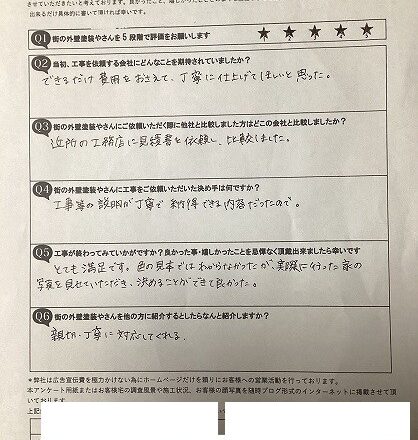 出来るだけ具体的に書いて頂ければ幸いです。
Q1 街の外壁塗装やさんを5段階で評価をお願いします ★ ★ ★ ★ ★
Q2 当初、工事を依頼する会社にどんなことを期待されていましたか?
できるだけ費用をおさえて、丁寧に仕上げてほしいと思った。
Q3 街の外壁塗装やさんにご依頼いただく際に他社と比較しました方はどこの会社と比較しましたか?
近所の工務店に見積書を依頼し、比較しました。
Q4 街の外壁塗装やさんに工事をご依頼いただいた決め手は何ですか?
工事等の説明が丁寧で納得できる内容だったので。
Q5 工事が終わってみていかがですか?良かった事・嬉しかったことを忌憚なく頂戴出来ましたら幸いです
とても満足です。色の見本ではわからなかったが、実際に行った家の
写真を見せていただき、決めることができて良かった。
Q6 街の外壁塗装やさんを他の方に紹介するとしたらなんと紹介しますか?
親切・丁寧に対応してくれる。
*弊社は広告宣伝費を極力かけない為にホームページだけを頼りにお客様への営業活動を行っております。
本アンケート用紙またはお客様宅の調査風景や施工状況、お客様の顔写真を随時ブログ形式のインターネットに掲載させて頂
いております。
上記